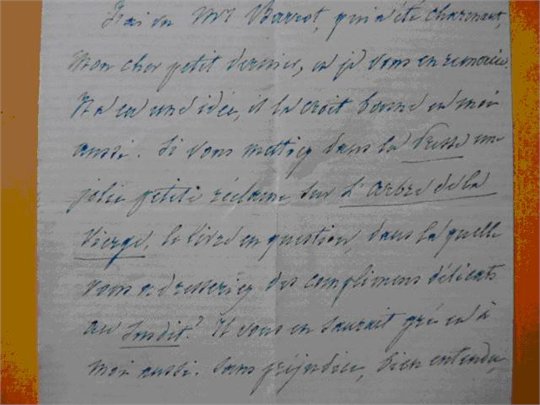 J'ai vu Mr Barrot, qui a été charmant,
mon cher petit dernier, et je vous en remercie.
Il a eu une idée, il la croit bonne et moi
aussi. Si vous mettiez dans la Presse une
jolie petite réclame sur l'arbre de la
Vierge, le livre en question, dans laquelle
vous adresseriez des complimens délicats
au susdit? Il vous en saurait gré et à
moi aussi. Sans préjudice, bien entendu,